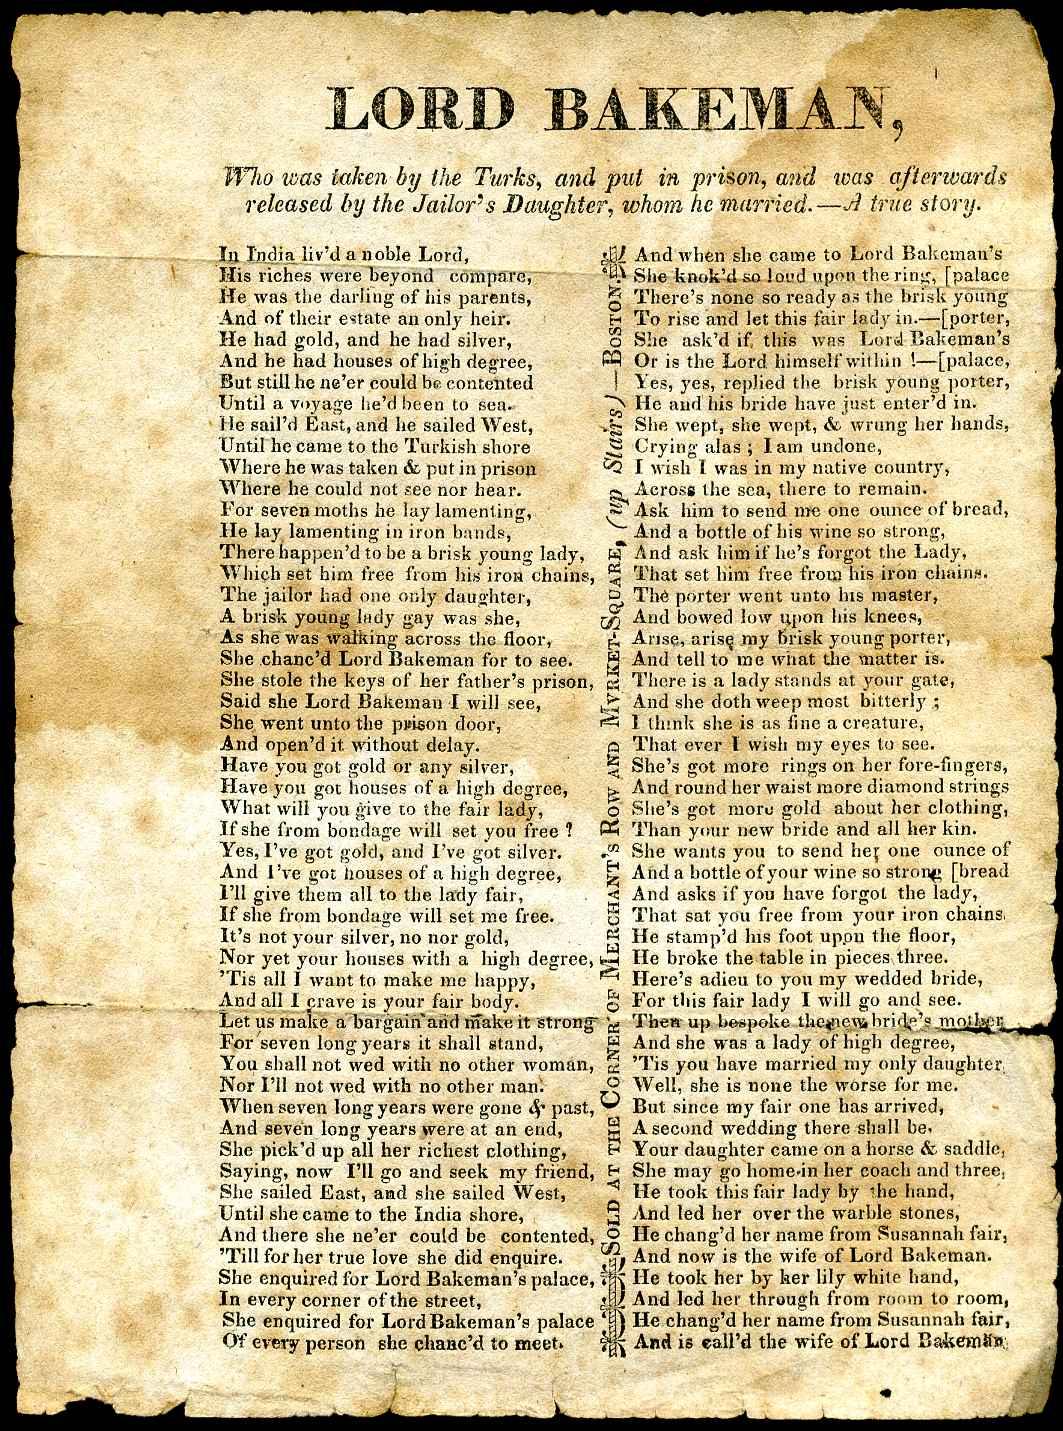 LORD BAKEMAN,
Who was taken by the Turks, and put in prison, and was afterwards
released by the Jailor's Daughter, whom he married.—A true story.
In India liv'd a noble Lord,
His riches were beyond compare,
He was the darling of his parents,
And of their estate an only heir.
He had gold, and he had silver,
And he had houses of high degree,
But still he ne'er could be contented
Until a voyage he'd been to sea.
He sail'd East, and he sailed West,
Until he came to the Turkish shore
Where he was taken & put in prison
Where he could not see nor hear.
For seven moths he lay lamenting,
He lay lamenting in iron bands,
There happen'd to be a brisk young lady,
Which set him free from his iron chains,
The jailor had one only daughter,
A brisk young lady gay was she,
As she was walking across the floor,
She chanc'd Lord Bakeman for to see.
She stole the keys of her father's prison,
Said she Lord Bakeman I will see,
She went unto the prison door,
And open'd it without delay.
Have you got gold or any silver,
Have you got houses of a high degree,
What will you give to the fair lady,
If she from bondage will set you free ?
Yes, I've got gold, and I've got silver.
And I've got houses of a high degree,
I'll give them all to the lady fair,
If she from bondage will set me free.
It's not your silver, no nor gold,
Nor yet your houses with a high degree,
'Tis all I want to make me happy,
And all I crave is your fair body.
Let us make a bargain and make it strong
For seven long years it shall stand,
You shall not wed with no other woman,
Nor I'll not wed with no other man.
When seven long years were gone & past,
And seven long years were at an end,
She pick'd up all her richest clothing,
Saying, now I'll go and seek my friend,
She sailed East, and she sailed West,
Until she came to the India shore,
And there she ne'er could be contented,
'Till for her true love she did enquire.
She enquired for Lord Bakeman's palace,
In every corner of the street,
She enquired for Lord Bakeman's palace
Of every person she chanc'd to meet.
SOLD AT THE CORNER OF MERCHANT'S ROW AND MVRKET-SQUARE, (up Stairs)—BOSTON.
And when she came to Lord Bakeman's
She knok'd so loud upon the ring, [palace
There's none so ready as the brisk young
To rise and let this fair lady in.—[porter,
She ask'd if, this was Lord Bakeman's
Or is the Lord himself within !—[palace,
Yes, yes, replied the brisk young porter,
He and his bride have just enter'd in.
She wept, she wept, & wrung her hands,
Crying alas ; I am undone,
I wish I was in my native country,
Across the sea, there to remain.
Ask him to send me one ounce of bread,
And a bottle of his wine so strong,
And ask him if he's forgot the Lady,
That set him free from his iron chains.
The porter went unto his master,
And bowed low upon his knees,
Arise, arise my brisk young porter,
And tell to me what the matter is.
There is a lady stands at your gate,
And she doth weep most bitterly ;
I think she is as fine a creature,
That ever I wish my eyes to see.
She's got more rings on her fore-fingers,
And round her waist more diamond strings
She's got more gold about her clothing,
Than your new bride and all her kin.
She wants you to send her one ounce of
And a bottle of your wine so strong [bread
And asks if you have forgot the lady,
That sat you free from your iron chains.
He stamp'd his foot upon the floor,
He broke the table in pieces three.
Here's adieu to you my wedded bride,
For this fair lady I will go and see.
Then up bespoke the new bride's mother
And she was a lady of high degree,
'Tis you have married my only daughter,
Well, she is none the worse for me.
But since my fair one has arrived,
A second wedding there shall be.
Your daughter came on a horse & saddle,
She may go home in her coach and three,
He took this fair lady by the hand,
And led her over the warble stones,
He chang'd her name from Susannah fair,
And now is the wife of Lord Bakeman.
He took her by her lily white hand,
And led her through from room to room,
He chang'd her name from Susannah fair,
And is call'd the wife of Lord Bakeman.